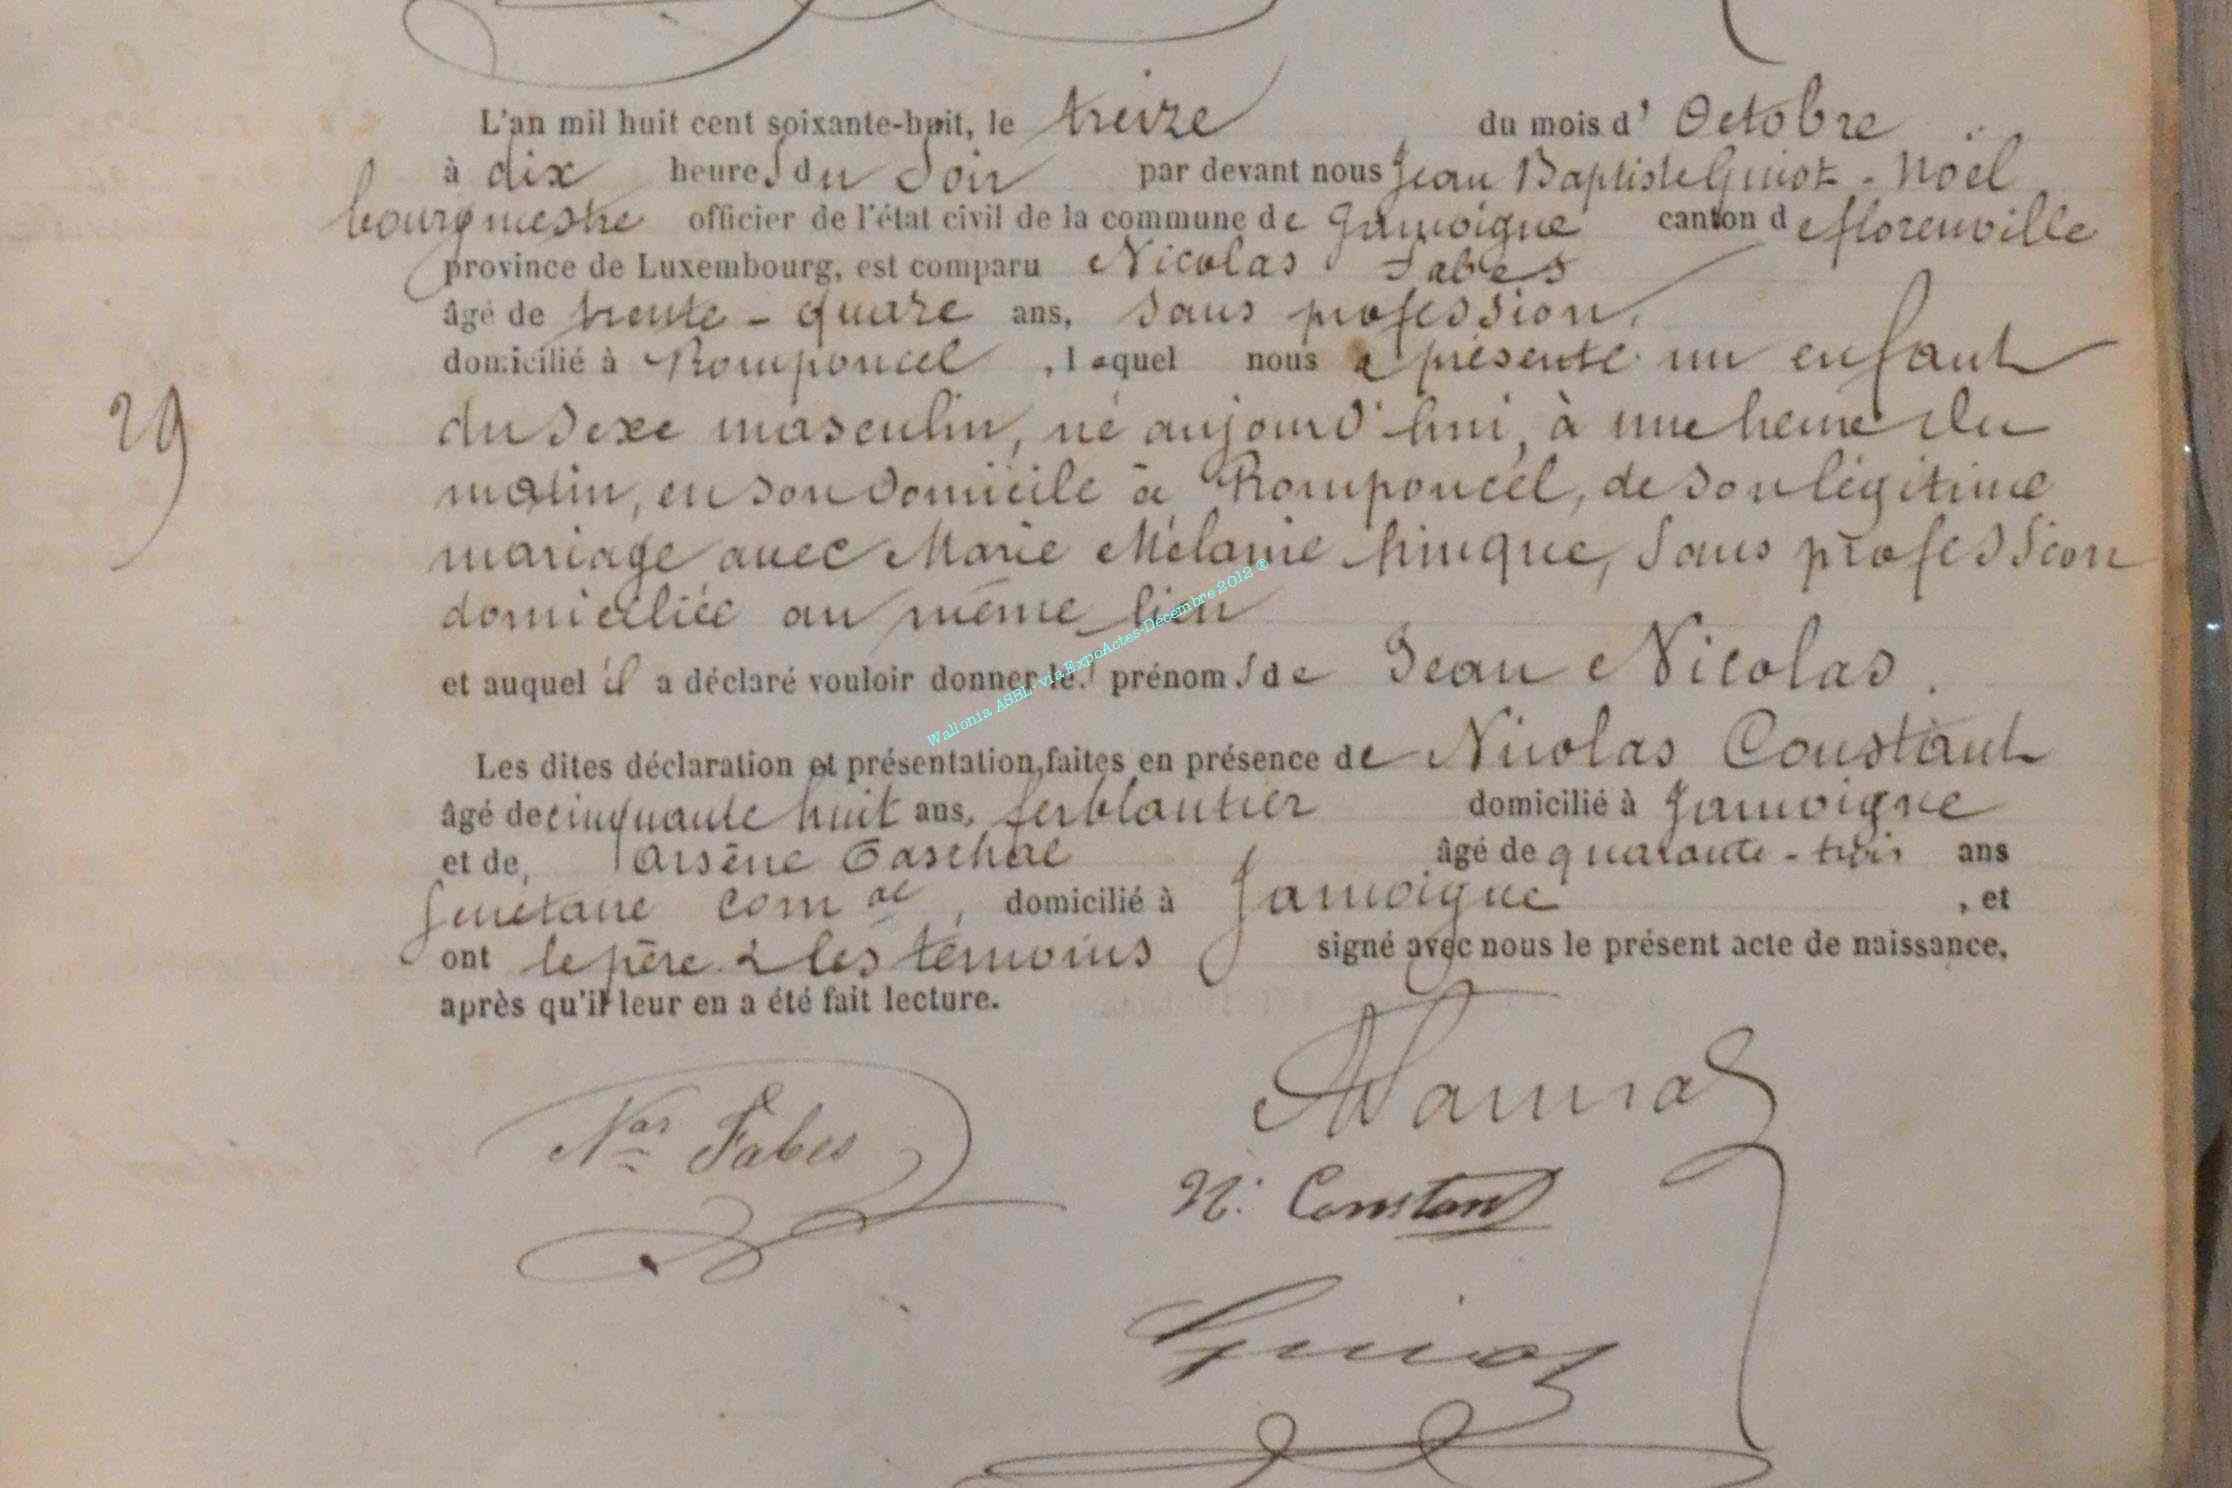 L'an mil huit cent soixante-huit, le treize du mois d' Octobre
à dix heures du Soir par devant nous Jean Baptiste Guiot - Noël
bourgmestre officier de l'état civil de la commune de Jamoigne canton de florenville
province de Luxembourg, est comparu Nicolas Fabes
âgé de trente - quatre ans, Sans profession,
domicilié à Romponcel , lequel nous a présenté un enfant
29
du Sexe masculin, né aujourd'hui, à une heure du
matin, en son domicile à Romponcel, de son légitime
mariage avec Marie Mélanie Sans profession
domiciliée au même lieu
et auquel il a déclaré vouloir donner les prénoms de Jean Nicolas.
Wallonia ASBL via ExpoActes-Décembre 2012 ®
Les dites déclaration et présentation, faites en présence de Nicolas Constant
âgé de cinquante huit ans, ferblantier domicilié à Jamoigne
et de, Arsène âgé de quarante - trois ans
Secrétaire com al , domicilié à Jamoigne , et
ont le père & les témoins signé avec nous le présent acte de naissance,
après qu'il leur en a été fait lecture.
Nas Fabes
N. Constant
Guiot